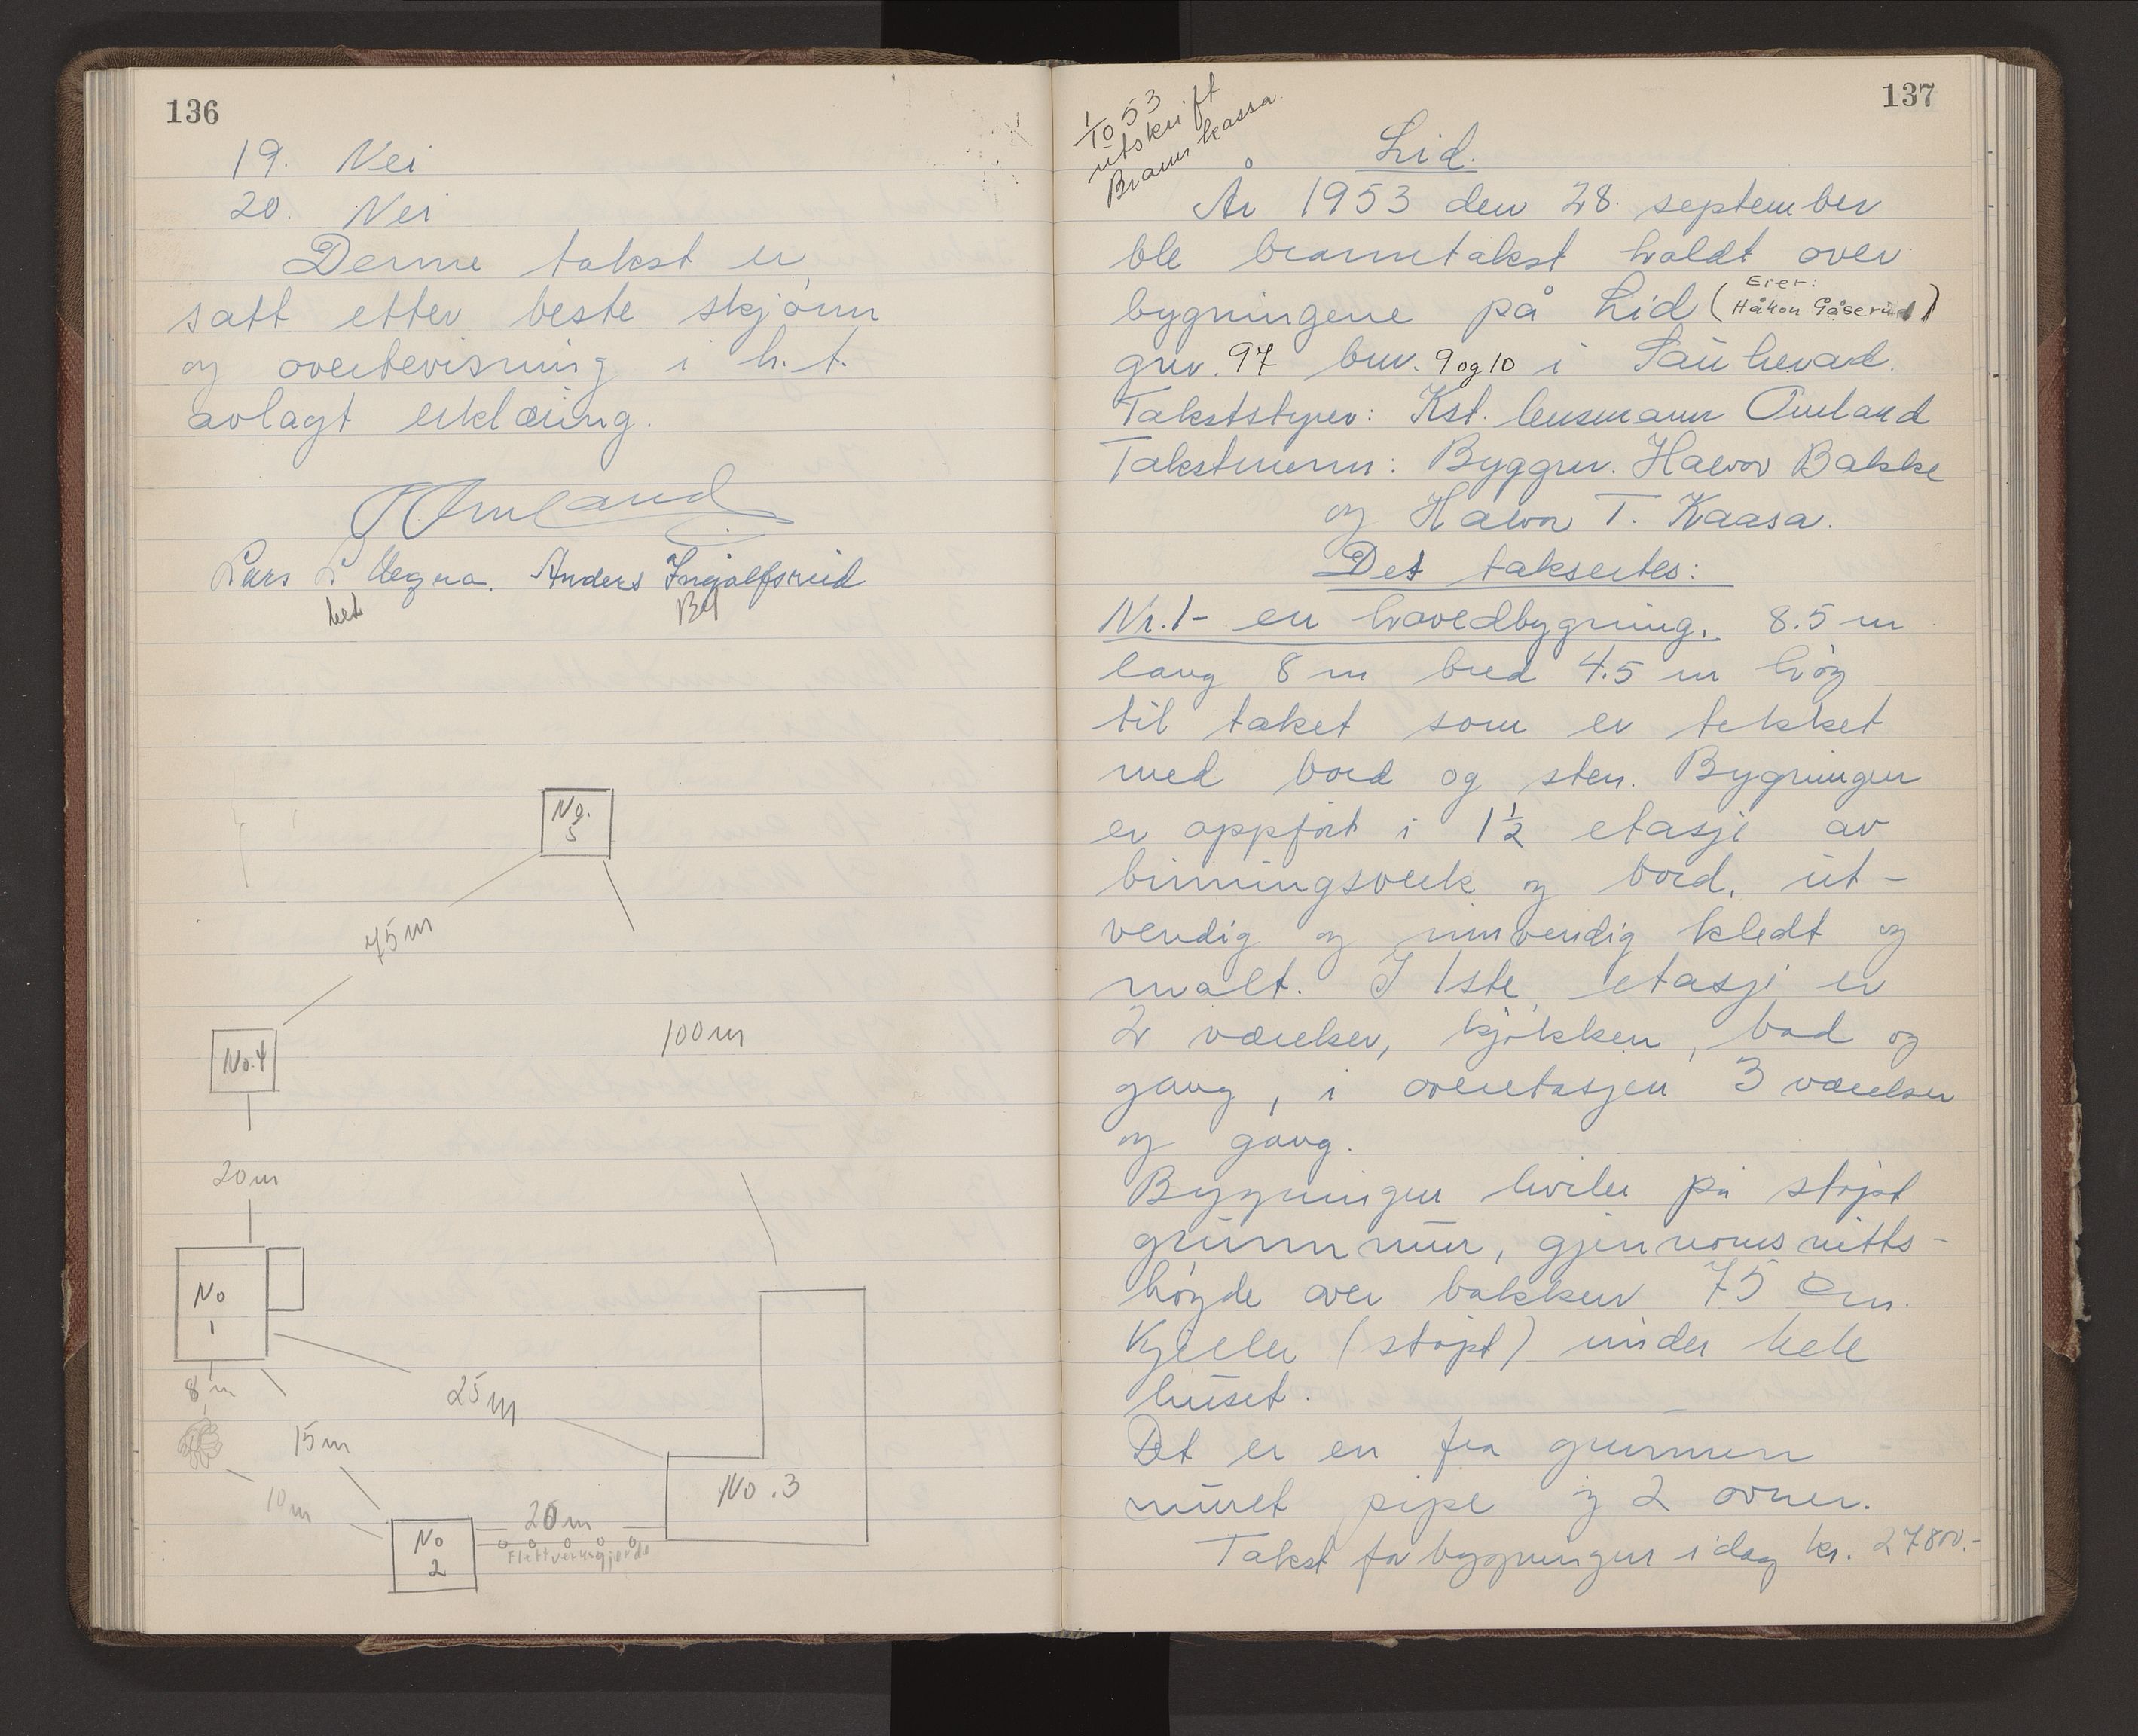 136
19. Nei
20. Nei
Denne takst er
satt etter beste skjønn
og overbevisning i h.t.
avlagt erklæring.
Omland
Lars L Anders Ingolfsrud
No. 5
75 m
100 m
No. 4
20 m
No 1
8 m
25 m
15 m
10 m
No. 3
No 2
20 m
Flettverkgjerde
137
1/10 53
utskrift
Brannkassa
Lid.
År 1953 den 28. september
ble branntakst holdt over
bygningene på Lid (Eier: Håkon Gåserud)
gnr. 97 bnr. 9 og 10 i Sauherad.
Takststyrer: Kst. lensmann Omland
Takstmenn: Byggm. Halvor Bakke
og Halvor T. Kaasa.
Det takseres:
Nr. 1 - en hovedbygning. 8.5 m
lang 8 m bred 4.5 m høg
til taket som er tekket
med bord og sten. Bygningen
er oppført i 1 1/2 etasje av
binningsverk og bord, ut-
vendig og innvendig kledt og
malt. I 1ste etasje er
2 værelser, kjøkken, bad og
gang, i overetasjen 3 værelser
og gang.
Bygningen hviler på støpt
grunnmur, gjennomsnitts-
høyde over bakken 75 cm.
Kjeller (støpt) under hele
huset.
Det er en fra grunnen
muret pipe og 2 ovner.
Takst for bygningen i dag kr. 27800.-